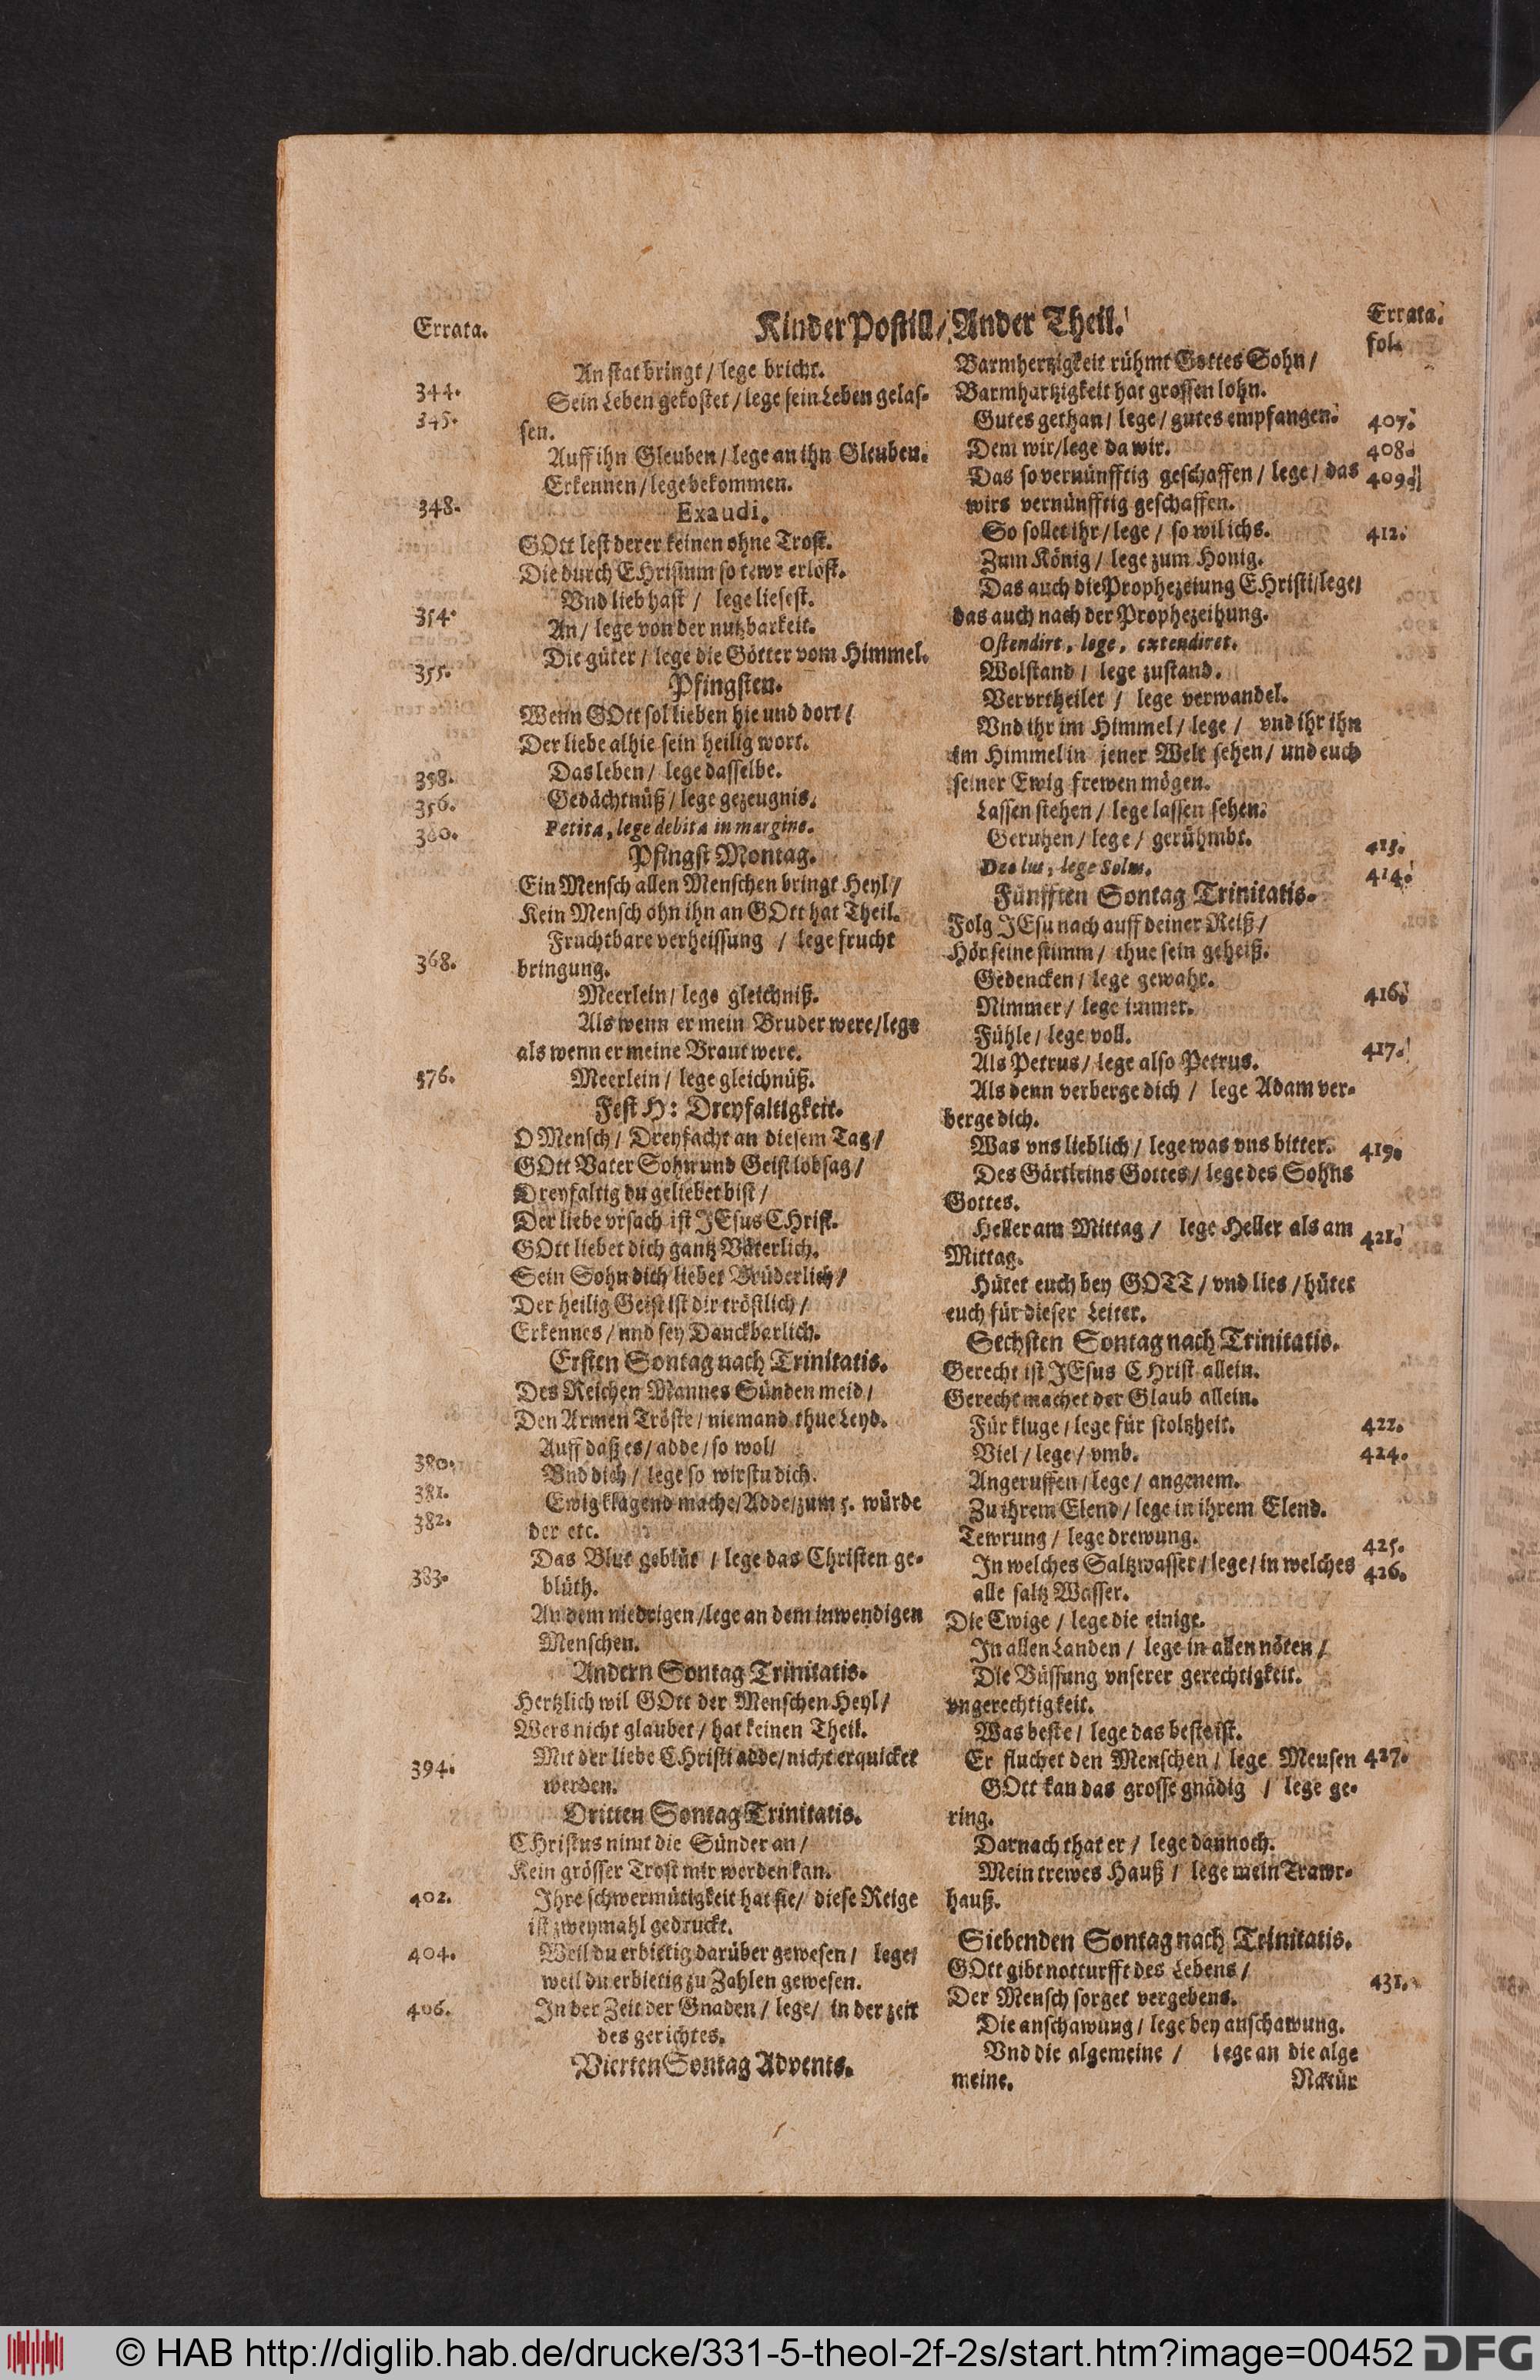 Errata.
Kinder Postill / Ander Theil.
Errata.
fol.
An stat bringt / lege bricht.
344.
Sein Leben gekostet / lege sein Leben gelas-
345.
sen.
Auff ihn Gleuben / lege an ihn Gleuben.
Erkennen / lege bekommen.
348.
Exaudi.
GOtt lest derer keinen ohne Trost.
Die durch CHristum so tewr erlöst.
Vnd lieb hast / lege liesest.
354.
An / lege von der nutzbarkeit.
Die güter / lege die Götter vom Himmel.
355.
Pfingsten.
Wenn GOtt sol lieben hie und dort /
Der liebe alhie sein heilig wort.
358.
Das leben / lege dasselbe.
356.
Gedächtnüß / lege gezeugnis.
360.
Petita, lege debita in margine.
Pfingst Montag.
Ein Mensch allen Menschen bringt Heyl /
Kein Mensch ohn ihn an GOtt hat Theil.
Fruchtbare verheissung / lege frucht
368.
bringung.
Meerlein / lege gleichniß.
Als wenn er mein Bruder were / lege
als wenn er meine Braut were.
376.
Meerlein / lege gleichnüß.
Fest H: Dreyfaltigkeit.
O Mensch / Dreyfacht an diesem Tag /
GOtt Vater Sohn und Geist lobsag /
Dreyfaltig du geliebet bist /
Der liebe vrsach ist JEsus CHrist.
GOtt liebet dich gantz Väterlich.
Sein Sohn dich liebet Brüderlich /
Der heilig Geist ist dir tröstlich /
Erkennes / und sey Danckbarlich.
Ersten Sontag nach Trinitatis.
Des Reichen Mannes Sünden meid /
Den Armen Tröste / niemand thue Leyd.
380.
Auff daß es / adde / so wol /
Vnd dich / lege so wirstu dich.
381.
Ewig klagend mache / Adde / zum 5. würde
382.
der etc.
Das Blut geblüt / lege das Christen ge-
383.
blüth.
An dem niedrigen / lege an dem inwendigen
Menschen.
Andern Sontag Trinitatis.
Hertzlich wil GOtt der Menschen Heyl /
Wers nicht glaubet / hat keinen Theil.
394.
Mit der liebe CHristi adde / nicht erquicket
werden.
Dritten Sontag Trinitatis.
CHristus nimt die Sünder an /
Kein grösser Trost mir werden kan.
402.
Ihre schwermütigkeit hat sie / diese Reige
ist zweymahl gedruckt.
404.
Weil du erbietig darüber gewesen / lege /
weil du erbietig zu Zahlen gewesen.
406.
In der Zeit der Gnaden / lege / in der zeit
des gerichtes.
Vierten Sontag Advents.
Barmhertzigkeit rühmt Gottes Sohn /
Barmhartzigkeit hat grossen lohn.
Gutes gethan / lege / gutes empfangen.
407.
Dem wir / lege da wir.
408.
Das so vernünfftig geschaffen / lege / das
409.
wirs vernünfftig geschaffen.
So sollet ihr / lege / so wil ichs.
412.
Zum König / lege zum Honig.
Das auch die Prophezeiung CHristi / lege /
das auch nach der Prophezeihung.
Ostendirt, lege, extendiret.
Wolstand / lege zustand.
Vervrtheilet / lege verwandel.
Vnd ihr im Himmel / lege / vnd ihr ihn
im Himmel in jener Welt sehen / und euch
seiner Ewig frewen mögen.
Lassen stehen / lege lassen sehen.
Geruhen / lege / gerühmbt.
413.
lege Solus.
414.
Fünfften Sontag Trinitatis.
Folg JEsu nach auff deiner Reiß /
Hör seine stimm / thue sein geheiß.
Gedencken / lege gewahr.
416.
Nimmer / lege immer.
Fühle / lege voll.
417.
Als Petrus / lege also Petrus.
Als denn verberge dich / lege Adam ver-
berge dich.
Was vns lieblich / lege was vns bitter.
419.
Des Gärtleins Gottes / lege des Sohns
Gottes.
Heller am Mittag / lege Heller als am
421.
Mittag.
Hütet euch bey GOTT / vnd lies / hütet
euch für dieser Leiter.
Sechsten Sontag nach Trinitatis.
Gerecht ist JEsus CHrist allein.
Gerecht machet der Glaub allein.
Für kluge / lege für stoltzheit.
422.
Viel / lege / vmb.
424.
Angeruffen / lege / angenem.
Zu ihrem Elend / lege in ihrem Elend.
Tewrung / lege drewung.
425.
In welches Saltzwasser / lege / in welches
426.
alle saltz Wasser.
Die Ewige / lege die einige.
In allen Landen / lege in allen nöten /
Die Büssung vnserer gerechtigkeit.
vngerechtigkeit.
Was beste / lege das beste ist.
Er fluchet den Menschen / lege Meusen
427.
GOtt kan das grosse gnädig / lege ge-
ring.
Darnach that er / lege dannoch.
Mein trewes Hauß / lege mein Trawr-
hauß.
Siebenden Sontag nach Trinitatis.
GOtt gibt notturfft des Lebens /
431.
Der Mensch sorget vergebens.
Die anschawung / lege bey anschawung.
Vnd die algemeine / lege an die alge
meine.
Natür
© HAB http://diglib.hab.de/drucke/331-5-theol-2f-2s/start.htm?image=00452
DFG